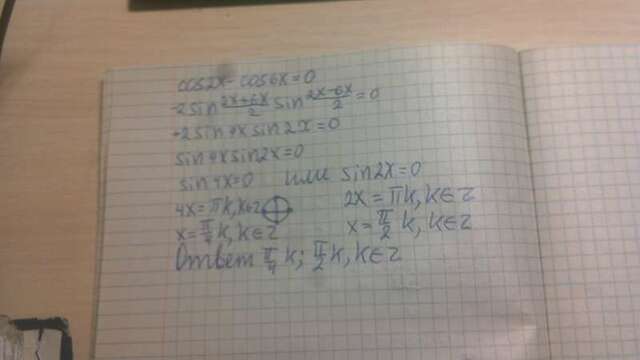 cos2x - cos6x = 0
-2sin (2x+6x)/2 sin (2x-6x)/2 = 0
+2sin4x sin2x = 0
sin4x sin2x = 0
sin4x = 0 или sin2x = 0
4x = πk, k∈z 2x = πk, k∈z
x = π/4 k, k∈z x = π/2 k, k∈z
Ответ π/4 k; π/2 k, k∈z